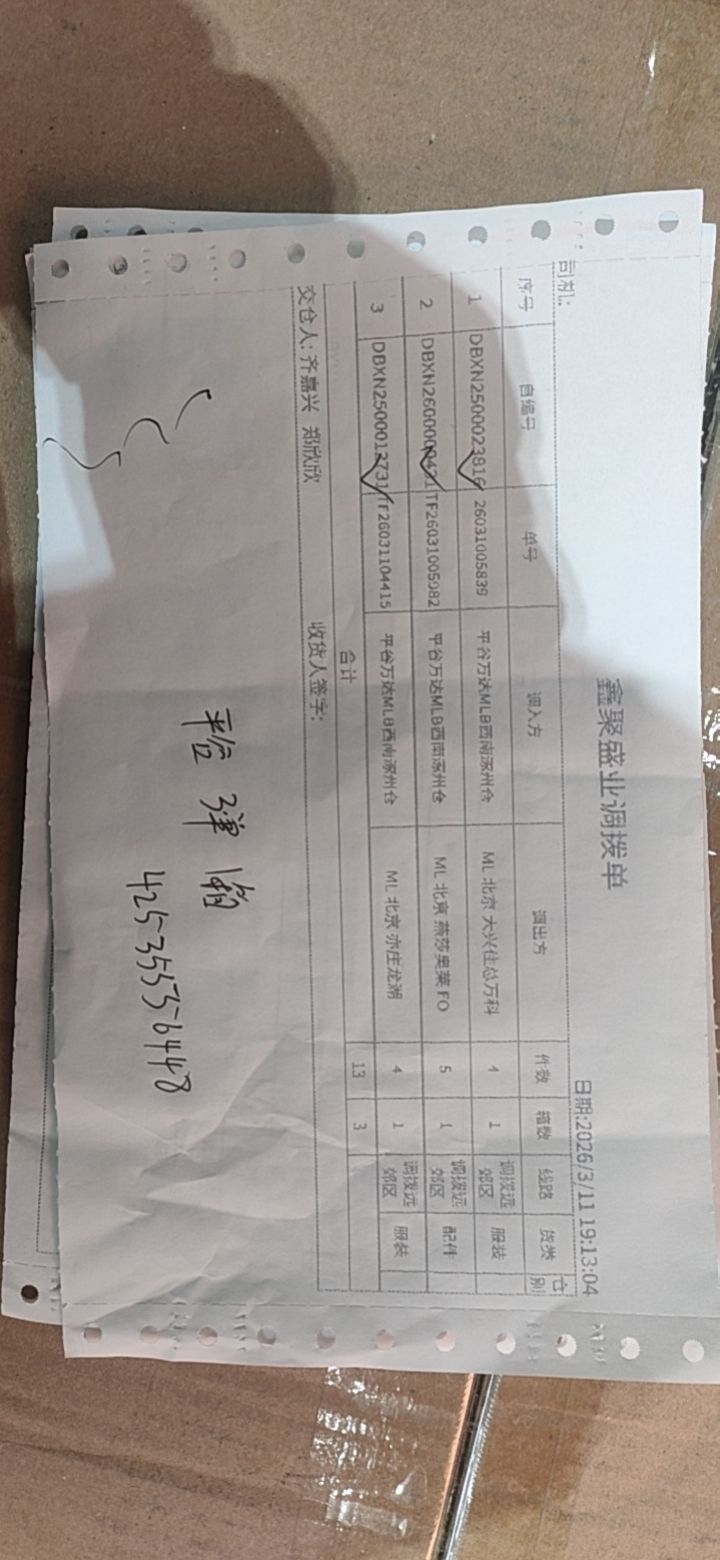 鑫聚盛业调拨单
司机: 日期:2026/3/11 19:13:04
序号 自编号 单号 调入方 调出方 件数 箱数 线路 货类 仓别
1 DBXN2500023816 26031005839 平谷万达MLB西南涿州仓 ML 北京 大兴住总万科 4 1 调拨远郊区 服装
2 DBXN2600000431 TF26031005982 平谷万达MLB西南涿州仓 ML 北京 燕莎奥莱 FO 5 1 调拨远郊区 配件
3 DBXN2500012731 TF26031104415 平谷万达MLB西南涿州仓 ML 北京 亦庄龙湖 4 1 调拨远郊区 服装
合计 13 3
交仓人: 齐嘉兴 郑欣欣 收货人签字: